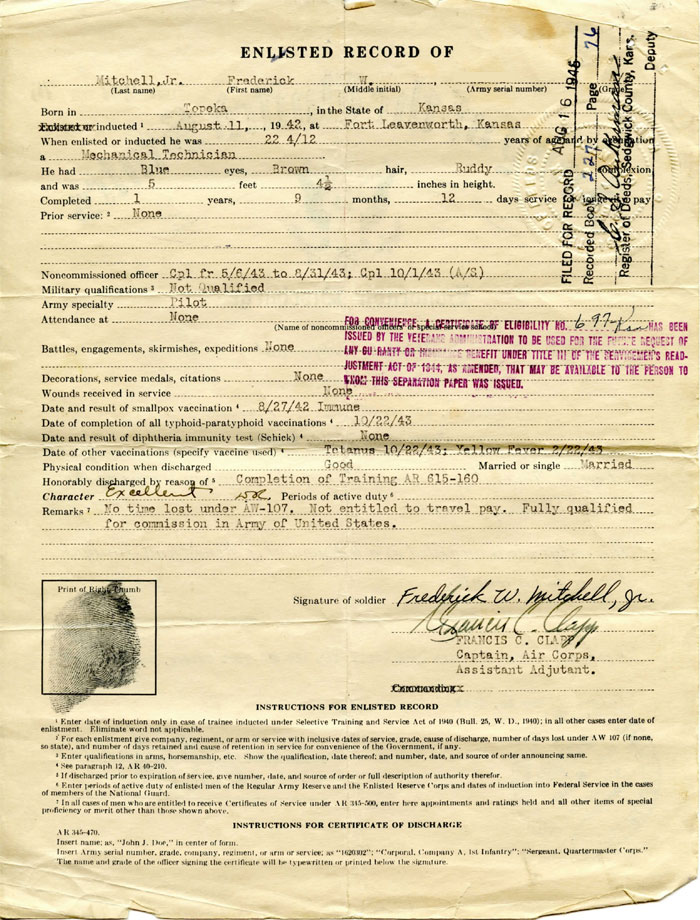 ENLISTED RECORD OF
Mitchell, Jr. Frederick W.
(Last name) (First name) (Middle initial) (Army serial number)
Born in Topeka, in the State of Kansas
Enlisted or inducted ¹ August 11, , 1942, at Fort Leavenworth, Kansas
When enlisted or inducted he was 22 4/12 years of age and by
a Mechanical Technician
He had Blue eyes, Brown hair, Ruddy complexion,
and was 5 feet 4½ inches in height.
Completed 1 years, 9 months, 12 days service for pay
Prior service: ² None
Noncommissioned officer Cpl fr 5/6/43 to 8/31/43; Cpl 10/1/43 (A/S)
Military qualifications ³ Not Qualified
Army specialty Pilot
Attendance at None
(Name of noncommissioned officers' or special service school)
Battles, engagements, skirmishes, expeditions None
Decorations, service medals, citations None
Wounds received in service None
Date and result of smallpox vaccination ⁴ 8/27/42 Immune
Date of completion of all typhoid-paratyphoid vaccinations ⁴ 10/22/43
Date and result of diphtheria immunity test (Schick) ⁴ None
Date of other vaccinations (specify vaccine used) ⁴ Tetanus 10/22/43; Yellow Fever 2/22/43
Physical condition when discharged Good Married or single Married
Honorably discharged by reason of ⁵ Completion of Training AR 615-160
Character Excellent Periods of active duty ⁶
Remarks ⁷ No time lost under AW-107. Not entitled to travel pay. Fully qualified
for commission in Army of United States.
FILED FOR RECORD AUG 16 1946
Recorded Book 227 Page 76
Register of Deeds, Sedgwick County, Kans.
Deputy
FOR CONVENIENCE A CERTIFICATE OF ELIGIBILITY NO. 697- HAS BEEN
ISSUED BY THE VETERANS ADMINISTRATION TO BE USED FOR THE FUTURE REQUEST OF
ANY GUARANTY OR INSURANCE BENEFIT UNDER TITLE III OF THE SERVICEMEN'S READ-
JUSTMENT ACT OF 1944, AS AMENDED, THAT MAY BE AVAILABLE TO THE PERSON TO
WHOM THIS SEPARATION PAPER WAS ISSUED.
Print of Right Thumb
Signature of soldier Frederick W. Mitchell, Jr.
Francis C. Clapp
FRANCIS C. CLAPP
Captain, Air Corps,
Assistant Adjutant.
Commanding
INSTRUCTIONS FOR ENLISTED RECORD
¹ Enter date of induction only in case of trainee inducted under Selective Training and Service Act of 1940 (Bull. 25, W. D., 1940); in all other cases enter date of
enlistment. Eliminate word not applicable.
² For each enlistment give company, regiment, or arm or service with inclusive dates of service, grade, cause of discharge, number of days lost under AW 107 (if none,
so state), and number of days retained and cause of retention in service for convenience of the Government, if any.
³ Enter qualifications in arms, horsemanship, etc. Show the qualification, date thereof; and number, date, and source of order announcing same.
⁴ See paragraph 12, AR 40-210.
⁵ If discharged prior to expiration of service, give number, date, and source of order or full description of authority therefor.
⁶ Enter periods of active duty of enlisted men of the Regular Army Reserve and the Enlisted Reserve Corps and dates of induction into Federal Service in the cases
of members of the National Guard.
⁷ In all cases of men who are entitled to receive Certificates of Service under AR 345-500, enter here appointments and ratings held and all other items of special
proficiency or merit other than those shown above.
INSTRUCTIONS FOR CERTIFICATE OF DISCHARGE
AR 345-470.
Insert name; as, "John J. Doe," in center of form.
Insert Army serial number, grade, company, regiment, or arm or service; as "1620302"; "Corporal, Company A, 1st Infantry"; "Sergeant, Quartermaster Corps."
The name and grade of the officer signing the certificate will be typewritten or printed below the signature.